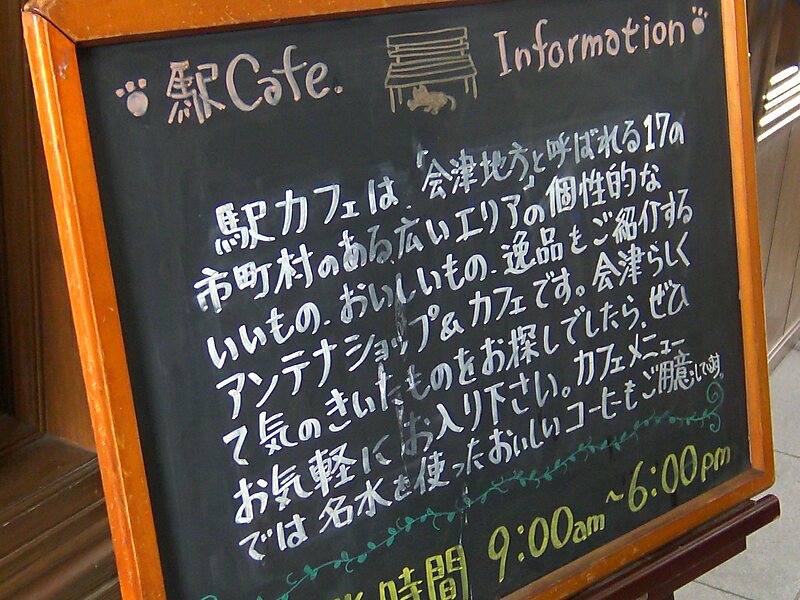 駅Cafe. Information
駅カフェは、「会津地方」と呼ばれる17の
市町村のある広いエリアの個性的な
いいもの、おいしいもの、逸品をご紹介する
アンテナショップ&カフェです。会津らしく
て気のきいたものをお探しでしたら、ぜひ
お気軽にお入り下さい。カフェメニュー
では名水を使ったおいしいコーヒーもご用意しています。
時間 9:00am~6:00pm